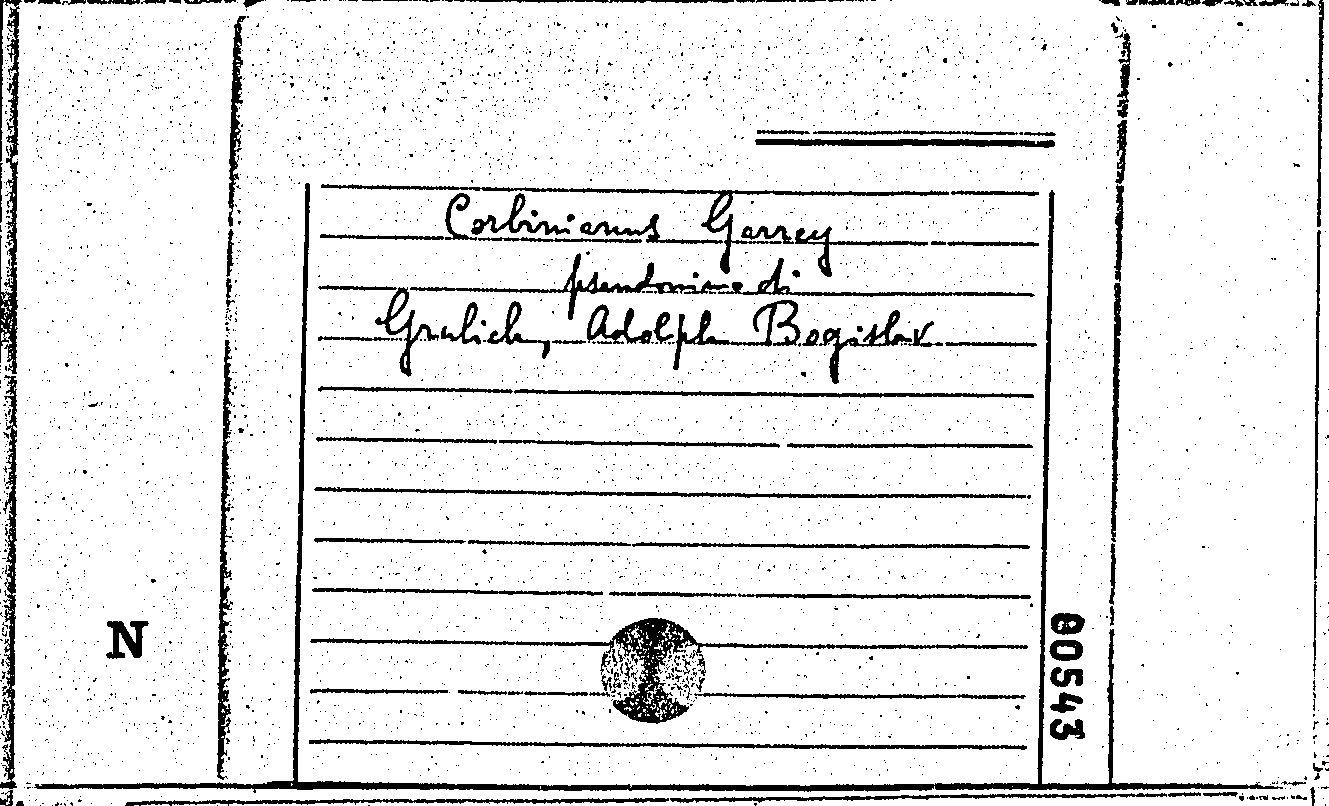 Corbinianus Garrey
pseudonimo di
Grulich, Adolph Bogislav
N
00543